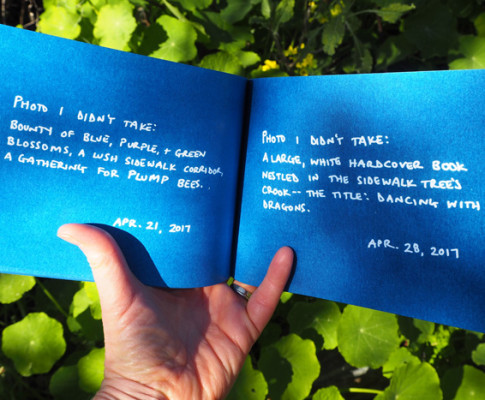 PHOTO I DIDN'T TAKE:
BOUNTY OF BLUE, PURPLE, + GREEN
BLOSSOMS, A LUSH SIDEWALK CORRIDOR,
A GATHERING FOR PLUMP BEES.
APR. 21, 2017
PHOTO I DIDN'T TAKE:
A LARGE, WHITE HARDCOVER BOOK
NESTLED IN THE SIDEWALK TREE'S
CROOK-- THE TITLE: DANCING WITH
DRAGONS.
APR. 28, 2017